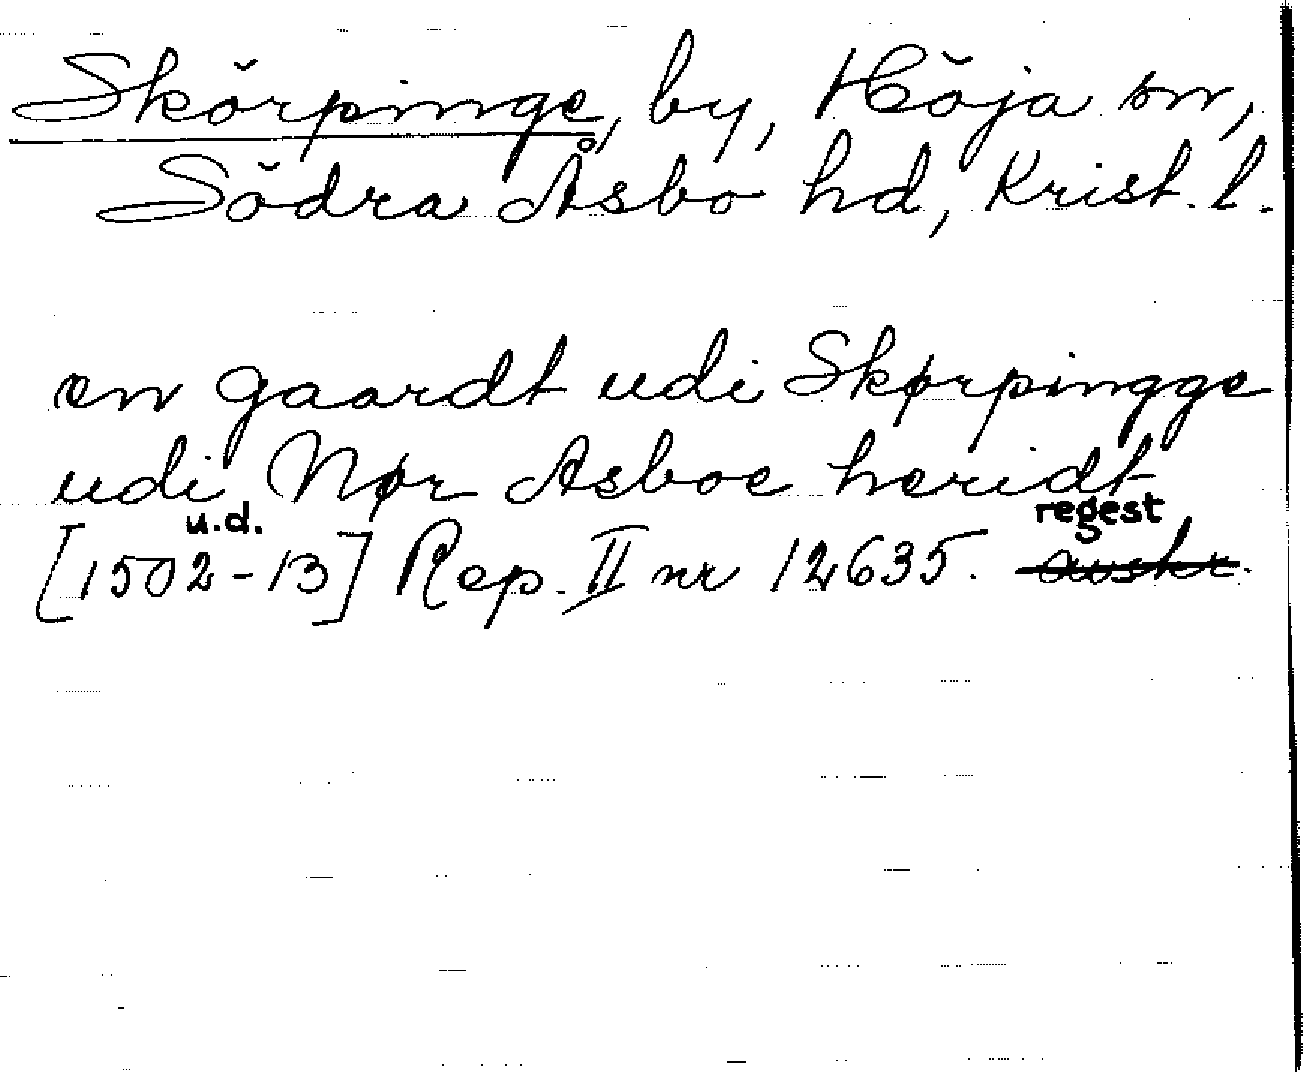 Skörpinge, by, Höja sn,
Södra Åsbo hd, Krist. l.
en gaardt udi Skørpingge
udi Nør Asboe heridt
u.d. regest
[1502-13] Rep. II nr 12635. avskr.